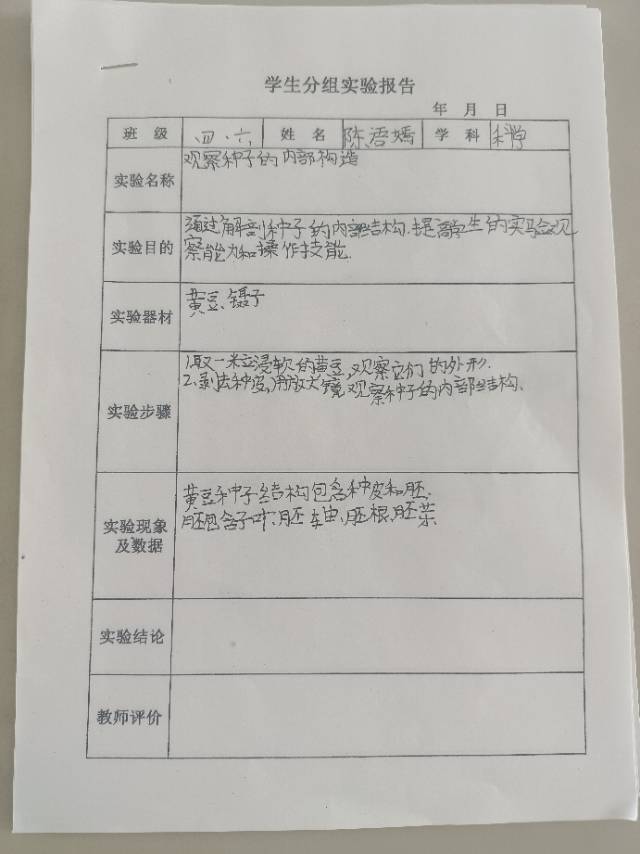 学生分组实验报告
年 月 日
班 级 四.六 姓 名 陈浯嫣 学 科 科学
实验名称 观察种子的内部构造
实验目的 通过解剖种子的内部结构.提高学生的实验观
察能力和操作技能.
实验器材 黄豆、镊子
实验步骤 1.取一粒浸软的黄豆,观察它们的外形.
2.剥去种皮,用放大镜观察种子的内部结构.
实验现象及数据 黄豆种子结构包含种皮和胚.
胚包含子叶、胚轴、胚根、胚芽
实验结论
教师评价